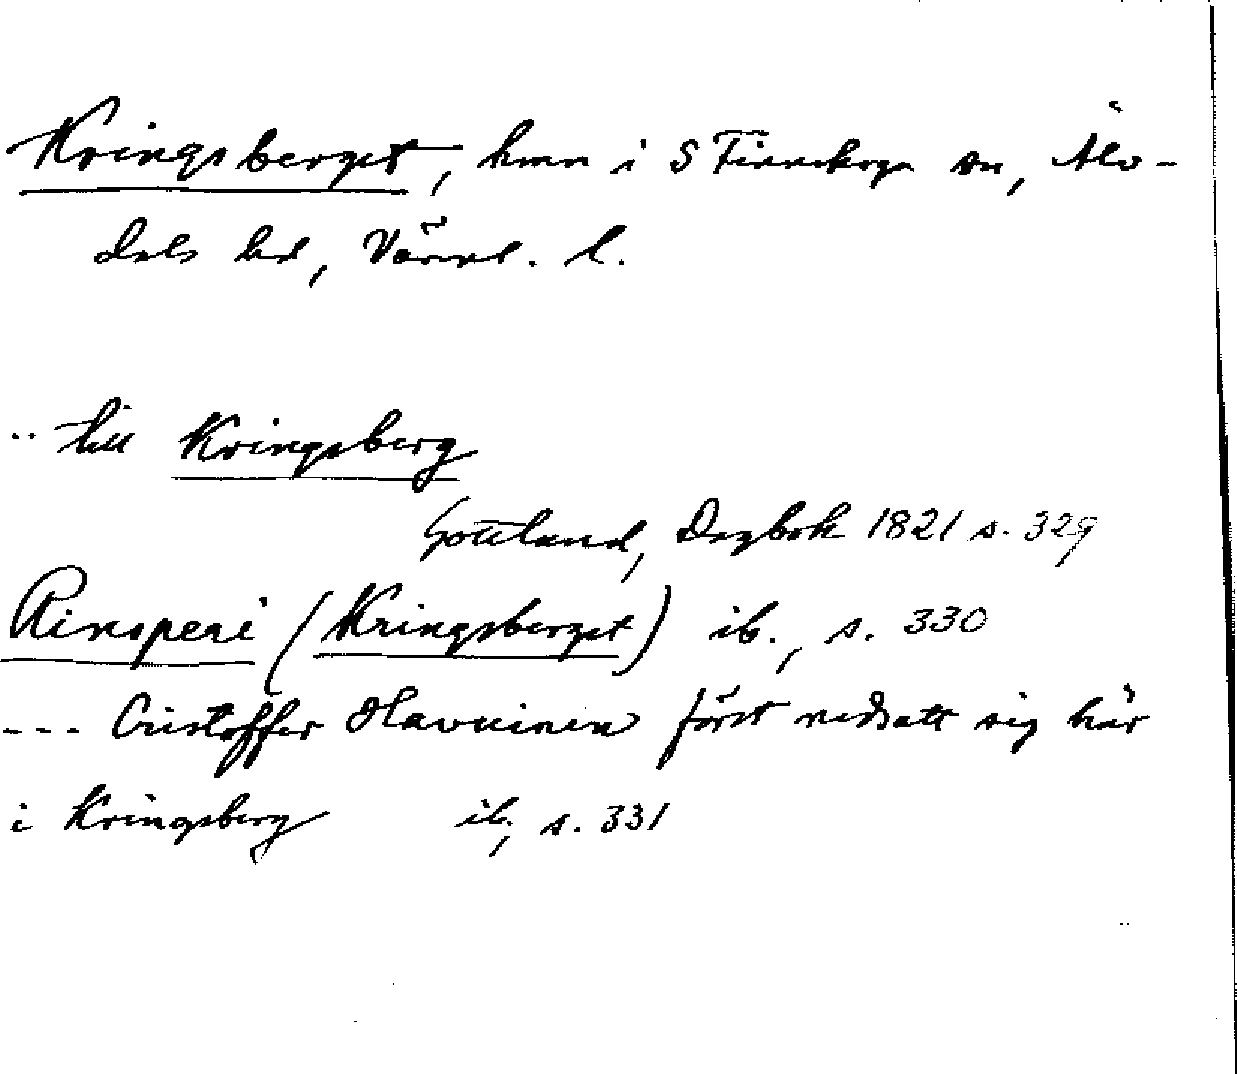 Kringsberget, hmn i S Finnskoga sn, Älv-
dals hd, Värml. l.
.. till Kringsberg
Gottlund, Dagbok 1821 s. 329
Rinsperi (Kringsberget) ib., s. 330
--- Cristoffer Havuinen först nedsatt sig här
i Kringsberg ib., s. 331